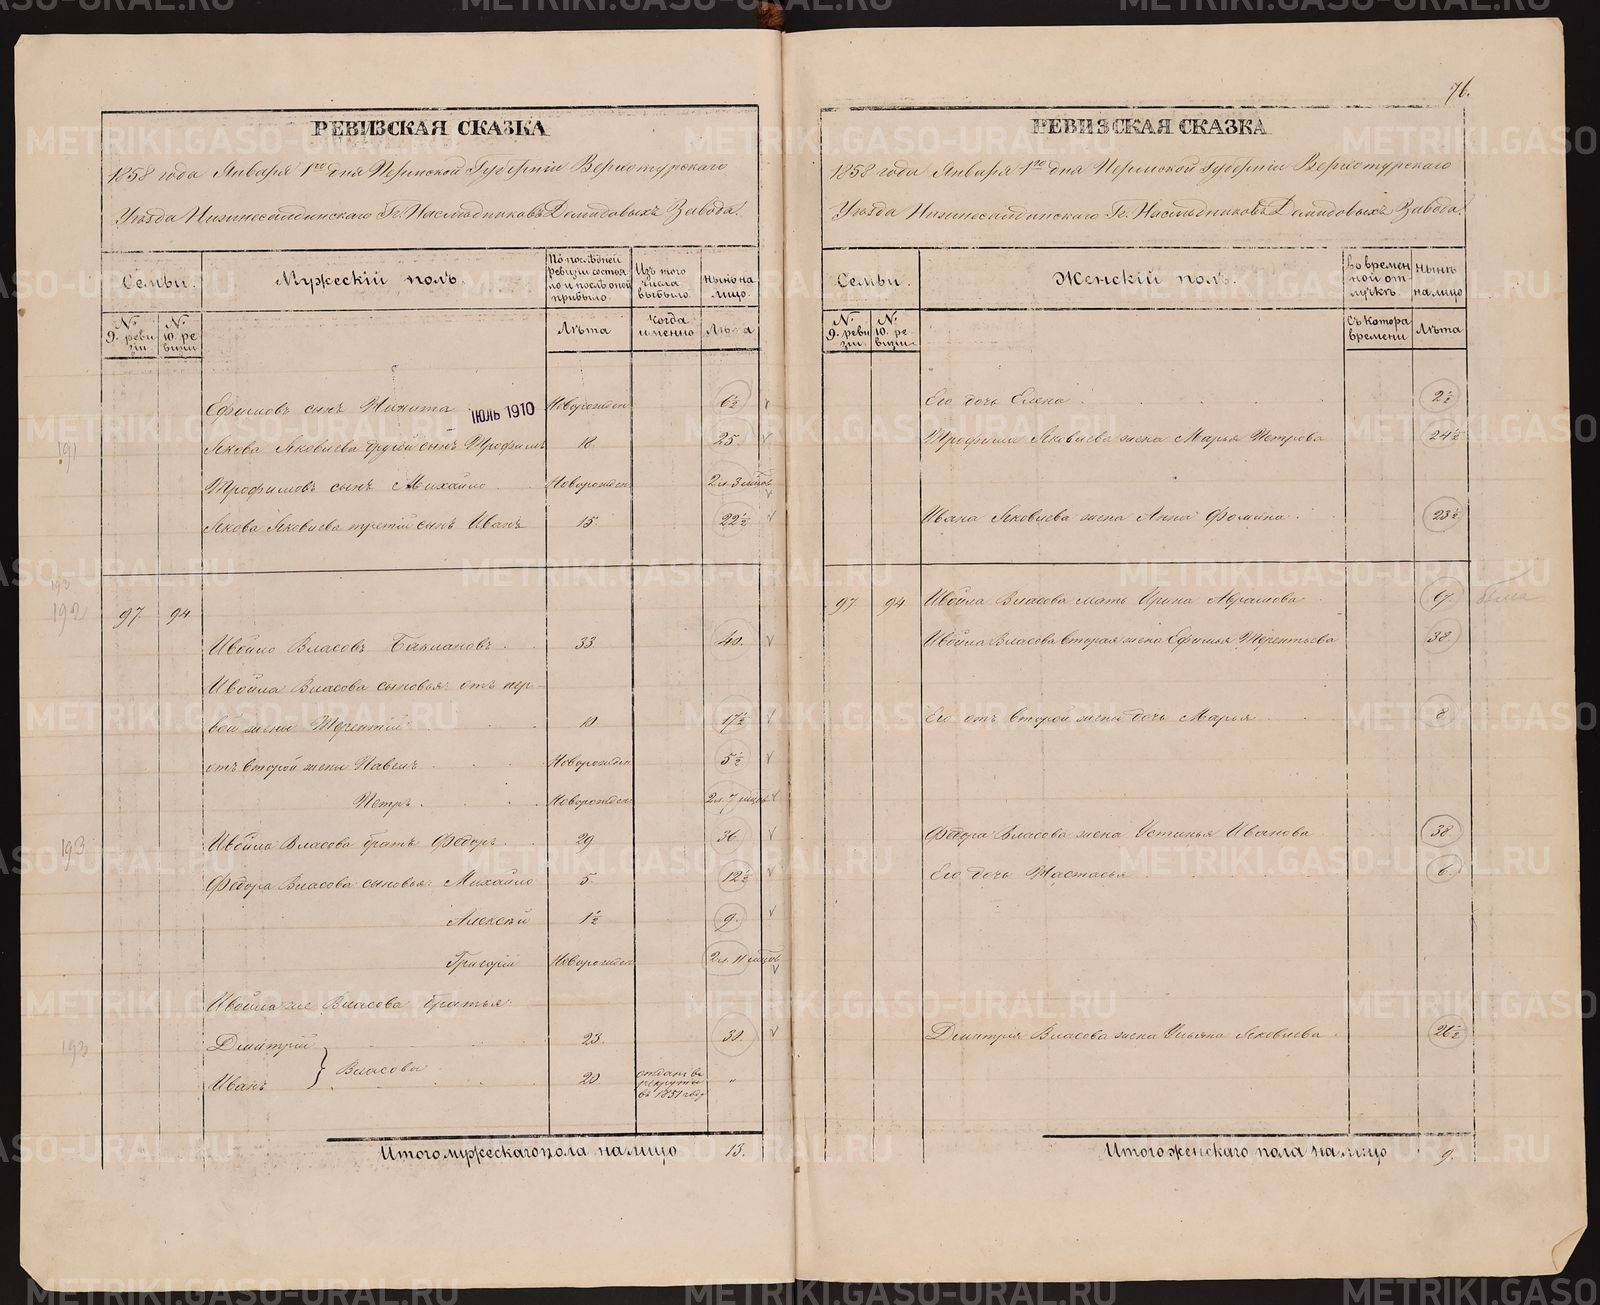 РЕВИЗСКАЯ СКАЗКА
1858 года Января 1го дня Пермской Губерніи Верхотурскаго
Уѣзда Нижнесалдинскаго Гг. Наслѣдниковъ Демидовыхъ Завода.
Семьи. Мужескій полъ. По послѣдней ревизіи состояло и послѣ оной прибыло Изъ того числа выбыло Нынѣ на лицо.
№ 9. ревизіи. № 10. ревизіи Лѣта Когда именно Лѣта
Ефимовъ сынъ Никита Новорожден 6½
ІЮЛЬ 1910
191 Якова Яковлева другой сынъ Трофимъ 18. 25.
Трофимовъ сынъ Михайло Новорожден 2 л. 3 мѣсов
Якова Яковлева третій сынъ Иванъ 15. 22½
193
192 97. 94.
Ивойло Власовъ Баклановъ 33. 40.
Ивойла Власова сыновья: отъ пер-
вой жены Терентій 10. 17½
отъ второй жены Павелъ Новорожден 5½
Петръ Новорожден 2 л. 7 мѣсов
193 Ивойла Власова братъ Ѳедоръ 29. 36.
Ѳедора Власова сыновья: Михайло 5. 12½
Алексѣй 1½ 9.
Григорій Новорожден 2 л. 11 мѣсов
Ивойла же Власова братья:
193 Дмитрій 23. 30.
Иванъ } Власовы 20 отданъ въ рекруты въ 1851 году "
Итого мужескаго пола на лицо 13.
76.
РЕВИЗСКАЯ СКАЗКА
1858 года Января 1го дня Пермской Губерніи Верхотурскаго
Уѣзда Нижнесалдинскаго Гг. Наслѣдниковъ Демидовыхъ Завода.
Семьи. Женскій полъ. Во временной отлучкѣ Нынѣ на лицо
№ 9. ревизіи. № 10. ревизіи. Съ котора времени Лѣта
Его дочь Елена 2½
Трофима Яковлева жена Марья Петрова 24½
Ивана Яковлева жена Анна Фомина 23½
97 94. Ивойла Власова мать Ирина Аврамова 67.
Ивойла Власова вторая жена Ефимья Терентьева 38.
Его отъ второй жены дочь Марья 8
Ѳедора Власова жена Устинья Иванова 38
Его дочь Настасья 6.
Дмитрія Власова жена Ульяна Яковлева 26½
Итого женскаго пола на лицо 9.
METRIKI.GASO-URAL.RU